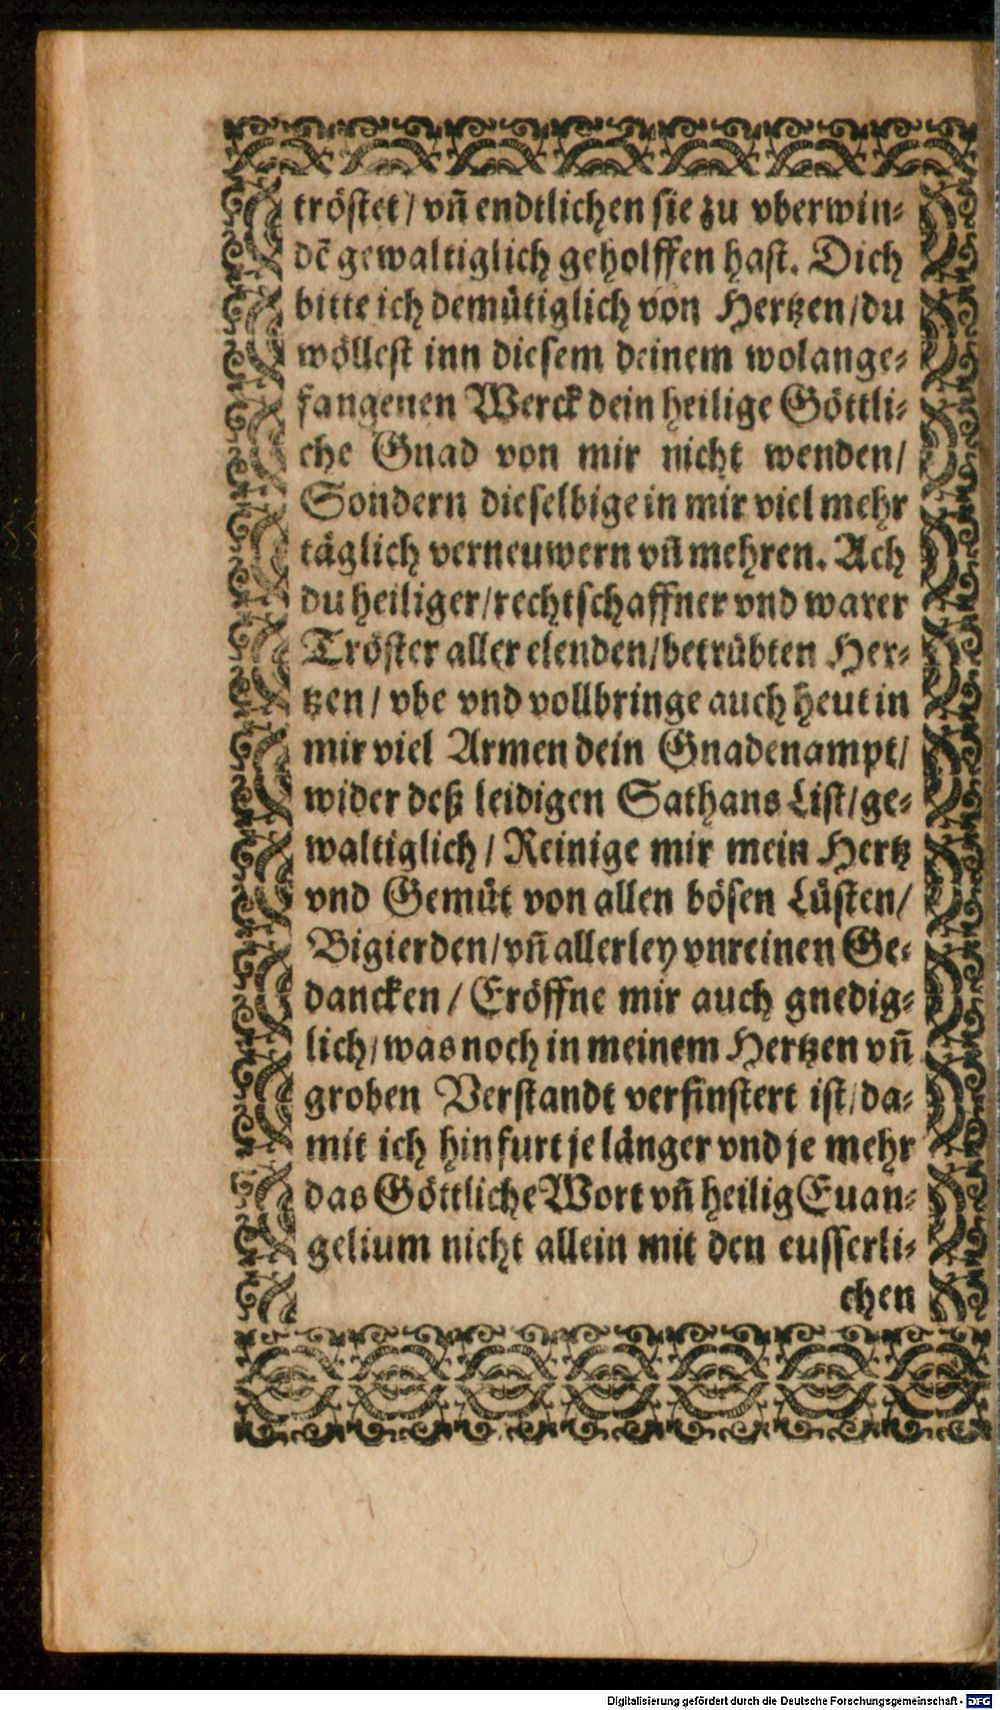 tröstet / vñ endtlichen sie zu vberwin⸗
dẽ gewaltiglich geholffen hast. Dich
bitte ich demütiglich von Hertzen / du
wöllest inn diesem deinem wolange⸗
fangenen Werck dein heilige Göttli⸗
che Gnad von mir nicht wenden /
Sondern dieselbige in mir viel mehr
täglich verneuwern vñ mehren. Ach
du heiliger / rechtschaffner vnd warer
Tröster aller elenden / betrübten Her⸗
tzen / vbe vnd vollbringe auch heut in
mir viel Armen dein Gnadenampt /
wider deß leidigen Sathans List / ge⸗
waltiglich / Reinige mir mein Hertz
vnd Gemüt von allen bösen Lüsten /
Bigierden / vñ allerley vnreinen Ge⸗
dancken / Eröffne mir auch gnedig⸗
lich / was noch in meinem Hertzen vñ
groben Verstandt verfinstert ist / da⸗
mit ich hinfurt je länger vnd je mehr
das Göttliche Wort vñ heilig Euan⸗
gelium nicht allein mit den eusserli⸗
chen
Digitalisierung gefördert durch die Deutsche Forschungsgemeinschaft - DFG